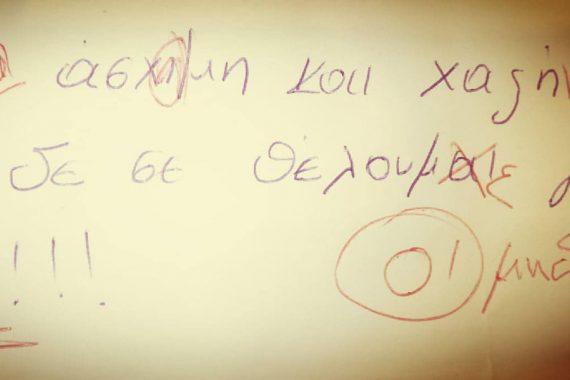 άσχημη και χαζή
δε σε θέλουμε
!!! οι